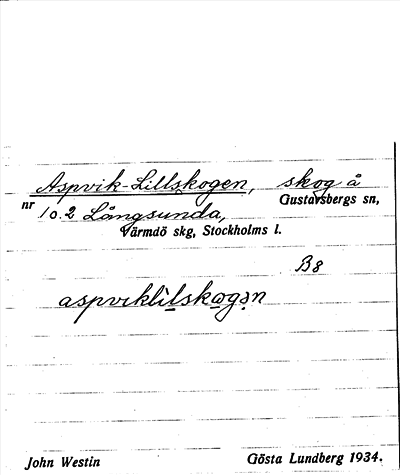 Aspvik-Lillskogen, skog å
nr 1 o. 2 Långsunda, Gustavsbergs sn,
Värmdö skg, Stockholms l.
B8
aspviklìlskogən
John Westin Gösta Lundberg 1934.